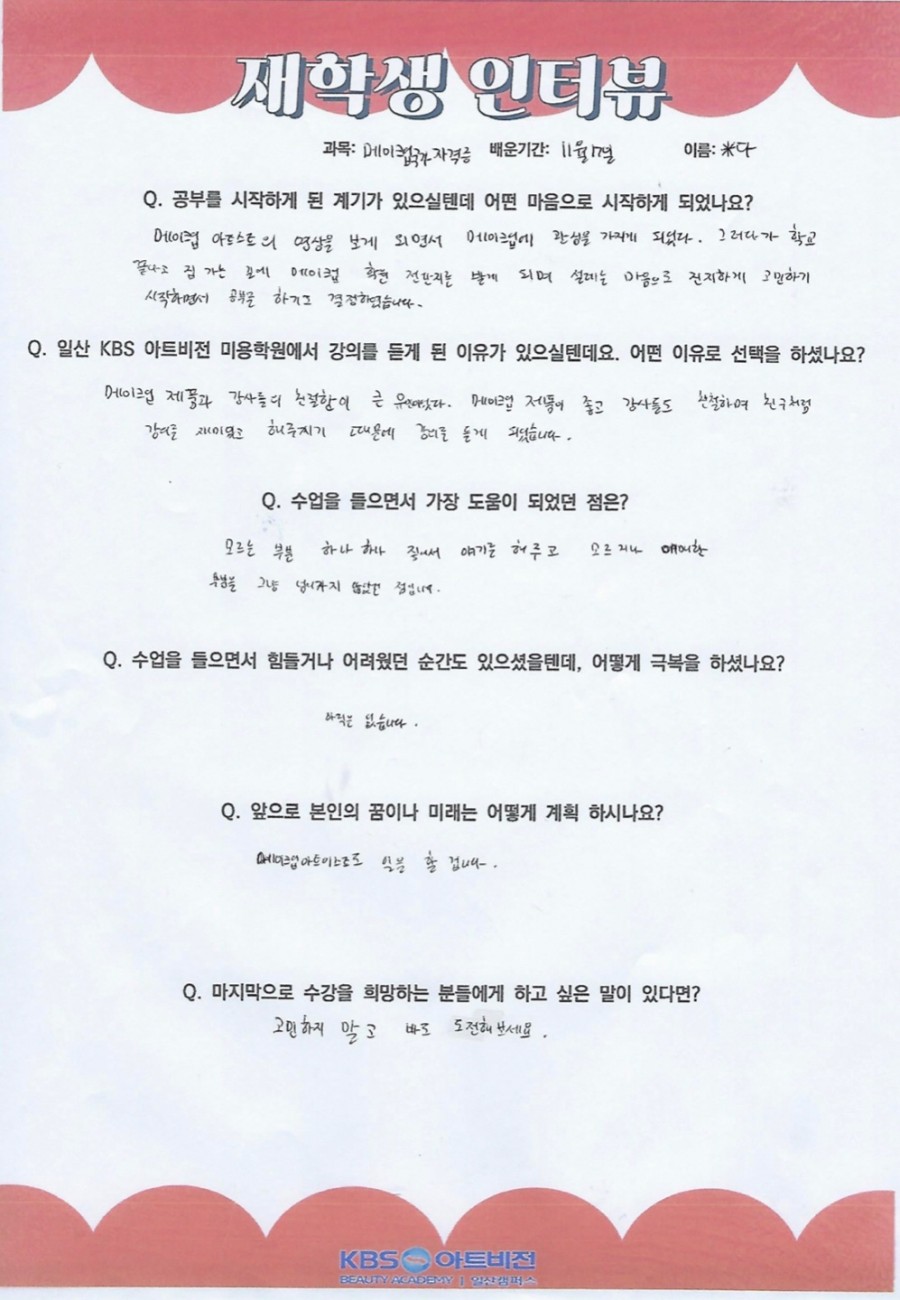 재학생 인터뷰
과목: 메이크업국가자격증 배운기간: 11월17일 이름: *다
Q. 공부를 시작하게 된 계기가 있으실텐데 어떤 마음으로 시작하게 되었나요?
메이크업 아티스트의 영상을 보게 되면서 메이크업에 관심을 가지게 되었다. 그러다가 학교
끝나고 집 가는 길에 메이크업 학원 전단지를 받게 되며 설레는 마음으로 진지하게 고민하기
시작하면서 공부를 하기로 결정하였습니다.
Q. 일산 KBS 아트비전 미용학원에서 강의를 듣게 된 이유가 있으실텐데요. 어떤 이유로 선택을 하셨나요?
메이크업 제품과 강사들의 친절함이 큰 메이크업 제품이 좋고 강사들도 친절하며 친구처럼
강의를 재미있고 해주시기 때문에 강의를 듣게 되었습니다.
Q. 수업을 들으면서 가장 도움이 되었던 점은?
모르는 부분 하나 하나 짚어서 얘기를 해주고 모르거나 애매한
부분을 그냥 넘어가지 않았던 점입니다.
Q. 수업을 들으면서 힘들거나 어려웠던 순간도 있으셨을텐데, 어떻게 극복을 하셨나요?
아직은 없습니다.
Q. 앞으로 본인의 꿈이나 미래는 어떻게 계획 하시나요?
메이크업아티스트로 일을 할 겁니다.
Q. 마지막으로 수강을 희망하는 분들에게 하고 싶은 말이 있다면?
고민하지 말고 바로 도전해보세요.
KBS 아트비전
BEAUTY ACADEMY | 일산캠퍼스